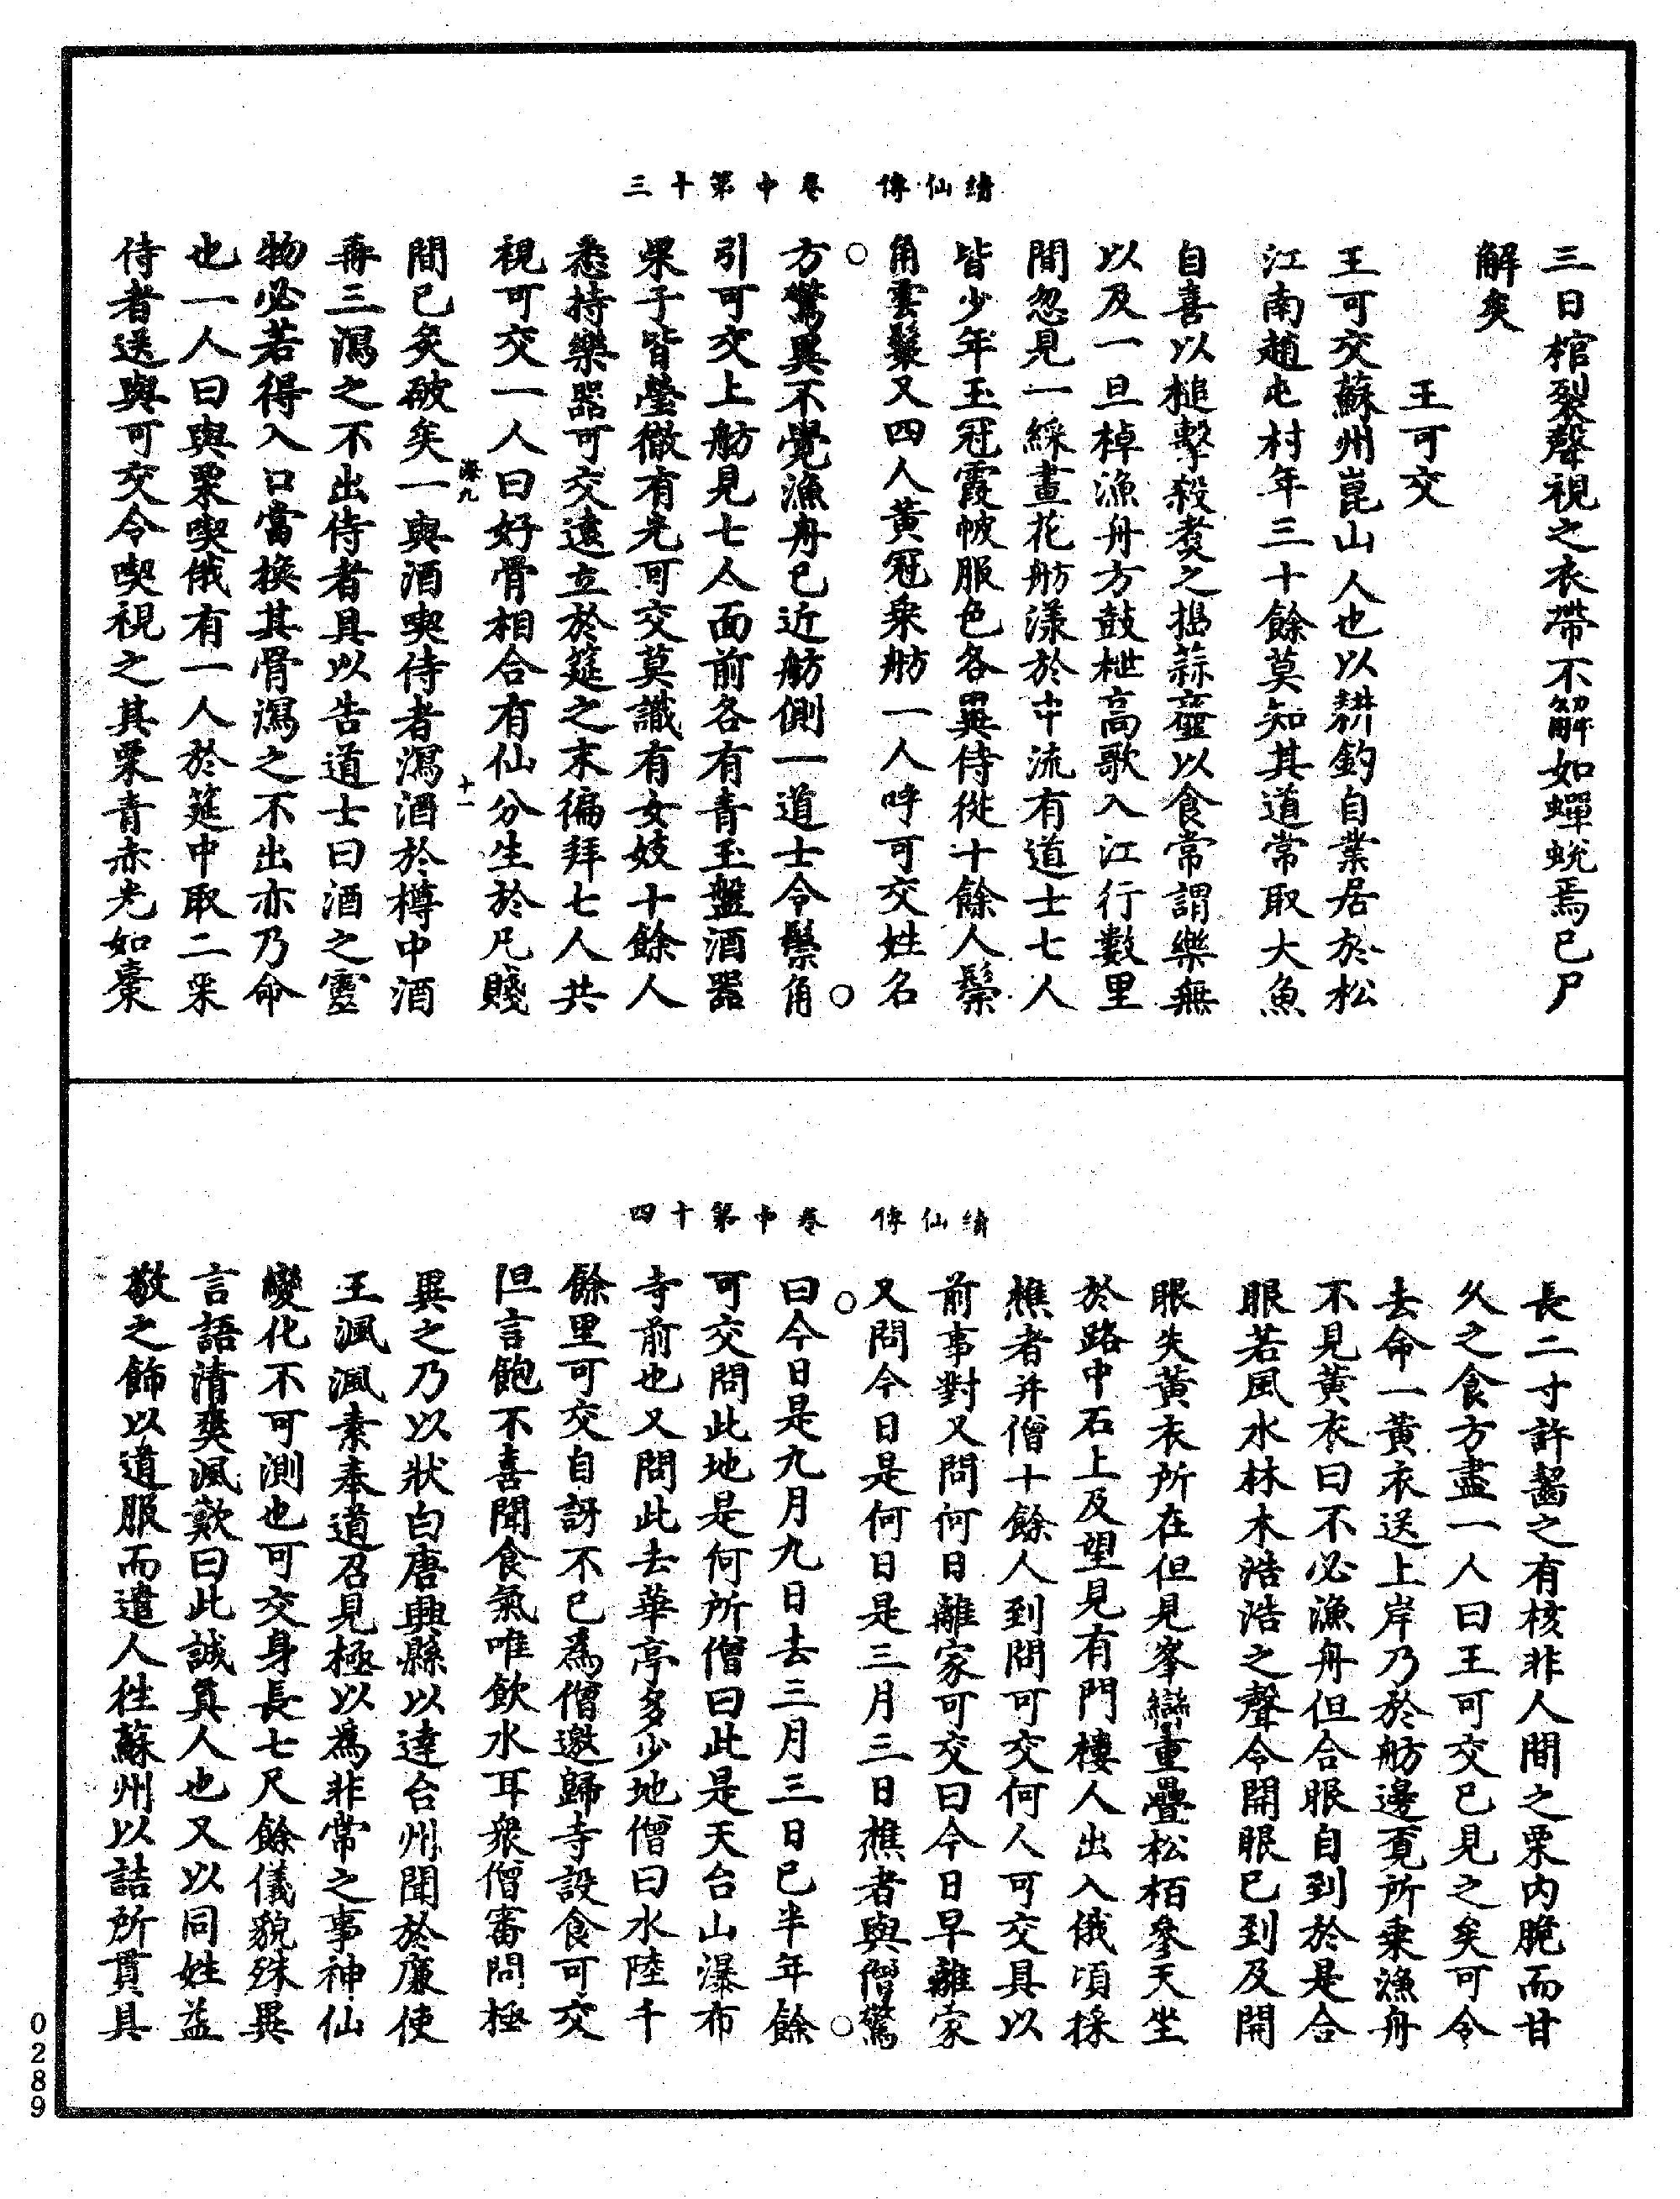 續仙傳　卷中第十三
三日棺裂聲視之衣帶不解如蟬蛻焉已尸
解矣
王可交
王可交蘇州崑山人也以耕釣自業居於松
江南趙屯村年三十餘莫知其道常取大魚
自喜以槌擊殺煑之擣蒜虀以食常謂樂無
以及一旦棹漁舟方鼓枻高歌入江行數里
間忽見一綵畫花舫漾於中流有道士七人
皆少年玉冠霞帔服色各異侍從十餘人鬟
角雲鬟又四人黃冠乘舫一人呼可交姓名
方驚異不覺漁舟已近舫側一道士令鬟角
引可交上舫見七人面前各有青玉盤酒器
果子皆瑩徹有光可交莫識有女妓十餘人
悉持樂器可交遠立於筵之末徧拜七人共
視可交一人曰好骨相合有仙分生於凡賤
海九　十一
間已矣破矣一與酒喫侍者瀉酒於樽中酒
再三瀉之不出侍者具以告道士曰酒之靈
物必若得入口當換其骨瀉之不出亦乃命
也一人曰與栗喫俄有一人於筵中取二栗
侍者送與可交令喫視之其栗青赤光如棗
續仙傳　卷中第十四
長二寸許齧之有核非人間之栗内脆而甘
久之食方盡一人曰王可交已見之矣可令
去命一黃衣送上岸乃於舫邊覓所乘漁舟
不見黃衣曰不必漁舟但合眼自到於是合
眼若風水林木浩浩之聲令開眼已到及開
眼失黃衣所在但見峯巒重疊松栢參天坐
於路中石上及望見有門樓人出入俄頃採
樵者并僧十餘人到問可交何人可交具以
前事對又問何日離家可交曰今日早離家
又問今日是何日是三月三日樵者與僧驚
曰今日是九月九日去三月三日已半年餘
可交問此地是何所僧曰此是天台山瀑布
寺前也又問此去華亭多少地僧曰水陸千
餘里可交自訝不已為僧邀歸寺設食可交
但言飽不喜聞食氣唯飲水耳衆僧審問極
異之乃以狀白唐興縣以達台州聞於廉使
王渢渢素奉道召見極以為非常之事神仙
變化不可測也可交身長七尺餘儀貌殊異
言語清爽渢歎曰此誠真人也又以同姓益
敬之飾以道服而遣人往蘇州以詰所貫具
0289